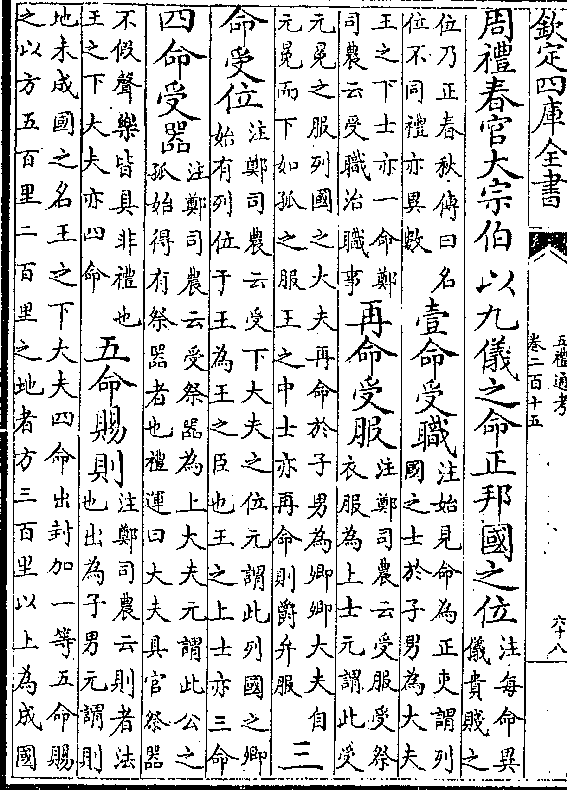 欽定四庫全書
五禮通考
卷二百十五
六十八
周禮春官大宗伯以九儀之命正邦國之位注每命異儀貴賤之
位乃正春秋傳曰名位不同禮亦異數壹命受職注始見命為正吏謂列國之士於子男為大夫
王之下士亦一命鄭司農云受職治職事再命受服注鄭司農云受服受祭衣服為上士元謂此受
元冕之服列國之大夫再命於子男為卿卿大夫自元冕而下如孤之服王之中士亦再命則爵弁服三
命受位注鄭司農云受下大夫之位元謂此列國之卿始有列位于王為王之臣也王之上士亦三命
四命受器注鄭司農云受祭器為上大夫元謂此公之孤始得有祭器者也禮運曰大夫具官祭器
不假聲樂皆具非禮也王之下大夫亦四命五命賜則注鄭司農云則者法也出為子男元謂則
地未成國之名王之下大夫四命出封加一等五命賜之以方五百里二百里之地者方三百里以上為成國